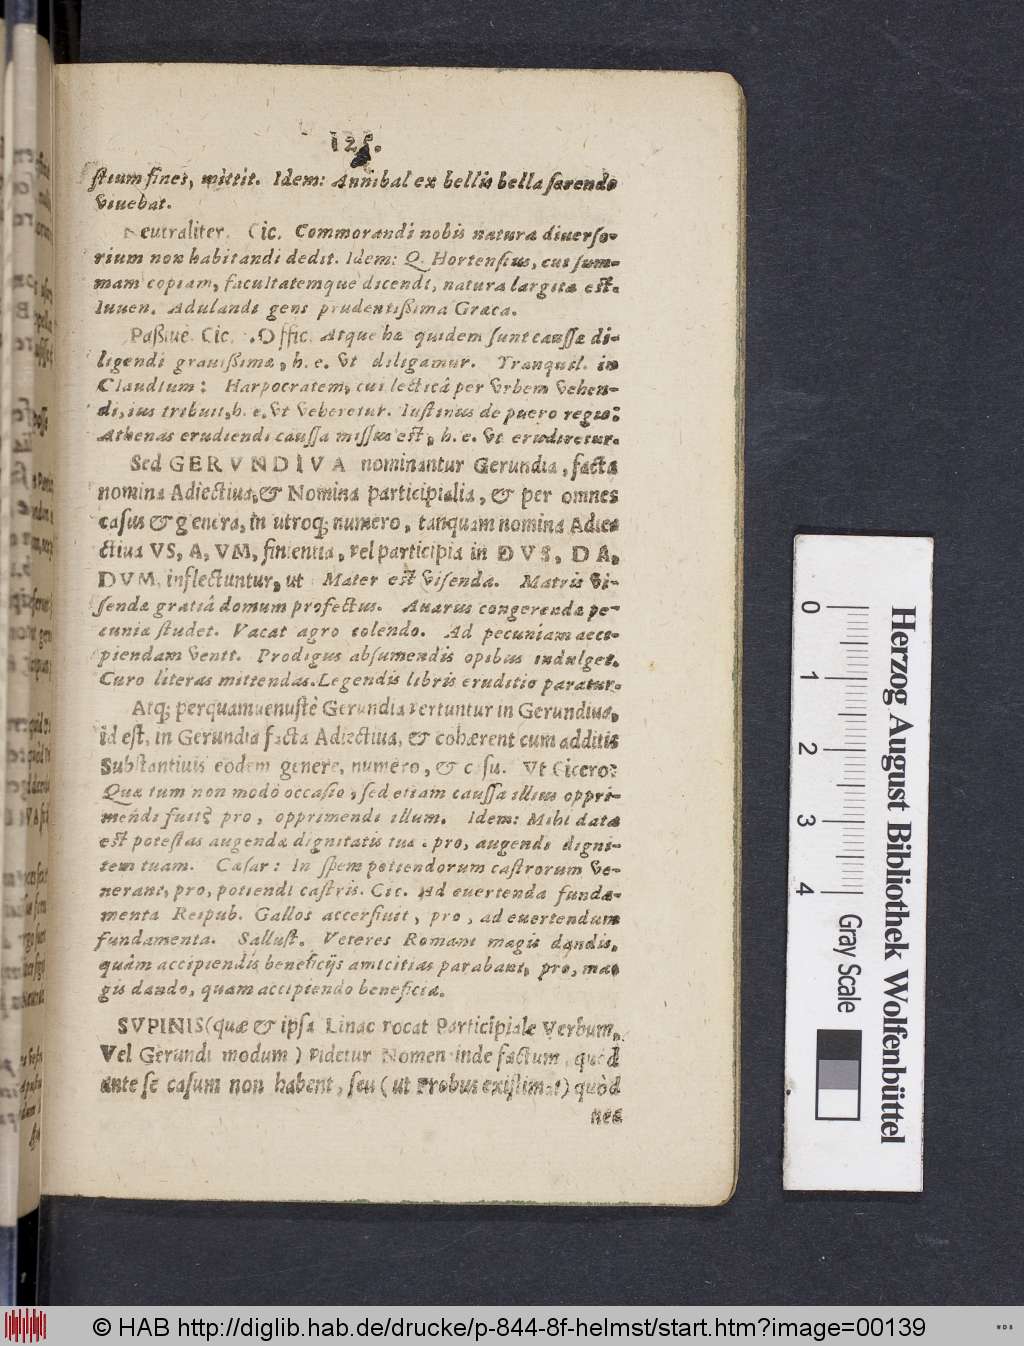 125.
stium fines, mittit. Idem: Annibal ex bellis bella serendo
viuebat.
Neutraliter. Cic. Commorandi nobis natura diuerso-
rium non habitandi dedit. Idem: Q. Hortensius, cui sum-
mam copiam, facultatemque dicendi, natura largita est.
Iuuen. Adulandi gens prudentißima Græca.
Paßiuè. Cic. Offic. Atque hæ quidem sunt caussæ di-
ligendi grauißimæ, h. e. vt diligamur. Tranquil. in
Claudium: Harpocratem, cui lecticâ per vrbem vehen-
di, ius tribuit, h. e. vt veheretur. Iustinus de puero regio:
Athenas erudiendi caussa missus est, h. e. vt erudiretur.
Sed GERVNDIVA nominantur Gerundia, facta
nomina Adiectiua, & Nomina participialia, & per omnes
casus & genera, in utroq; numero, tanquam nomina Adie-
ctiua VS, A, VM, finientia, vel participia in DVS, DA,
DVM, inflectuntur, ut Mater est visenda. Matris vi-
sendæ gratiâ domum profectus. Auarus congerendæ pe-
cuniæ studet. Vacat agro colendo. Ad pecuniam acci-
piendam venit. Prodigus absumendis opibus indulget.
Curo literas mittendas. Legendis libris eruditio paratur.
Atq; perquam uenustè Gerundia vertuntur in Gerundiua,
id est, in Gerundia facta Adiectiua, & cohærent cum additis
Substantiuis eodem genere, numero, & casu. Vt Cicero:
Quæ tum non modò occasio, sed etiam caussa illius oppri-
mendi fuit? pro, opprimendi illum. Idem: Mihi data
est potestas augendæ dignitatis tuæ. pro, augendi digni-
tem tuam. Cæsar: In spem potiendorum castrorum ve-
nerant, pro, potiendi castris. Cic. Ad euertenda funda-
menta Reipub. Gallos accersiuit, pro, ad euertendum
fundamenta. Sallust. Veteres Romani magis dandis,
quàm accipiendis beneficijs amicitias parabant, pro, ma-
gis dando, quam accipiendo beneficia.
SVPINIS (quæ & ipsa Linac. vocat Participiale Verbum,
Vel Gerundi modum) videtur Nomen inde factum, quòd
ante se casum non habent, seu (ut Probus existimat) quòd
nec
0 1 2 3 4
Gray Scale
Herzog August Bibliothek Wolfenbüttel
© HAB http://diglib.hab.de/drucke/p-844-8f-helmst/start.htm?image=00139